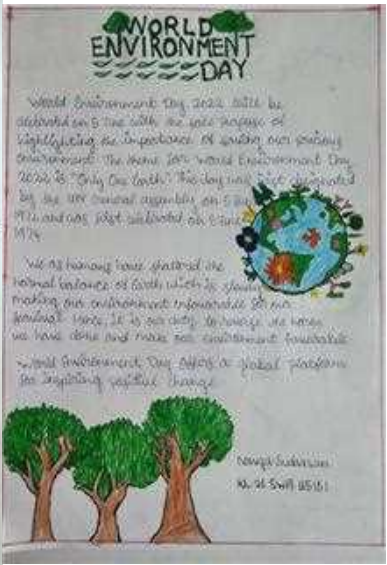 WORLD
ENVIRONMENT
DAY
World Environment Day 2022 will be
celebrated on 5 June with the sole purpose of
highlighting the importance of saving our precious
environment. The theme for World Environment Day
2022 is "Only One Earth". This day was first designated
by the UN General assembly on 5 
1972 and was first celebrated on 5 June
1974
We as humans have shattered the
normal balance of Earth which is slowly
making our environment unfavourable for our
survival. Hence, It is our duty to reverse the
we have done and make our environment favourable
World Environment Day offers a global platform
for inspiring positive change